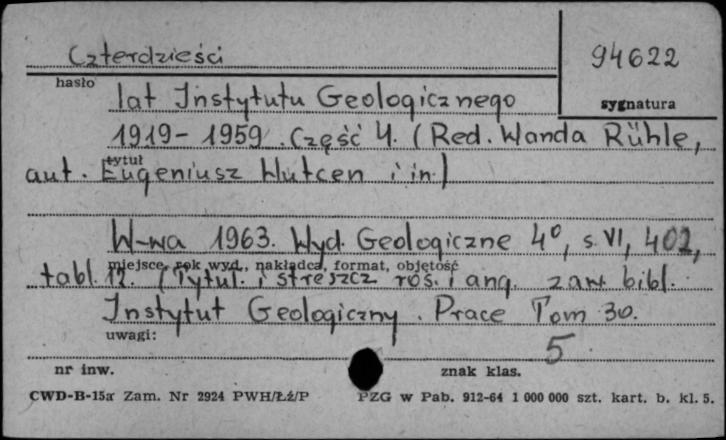 Czterdzieści
94622
hasło
lat Instytutu Geologicznego
sygnatura
1919-1959. Część 4. (Red. Wanda Rühle,
tytuł
aut. Eugeniusz Wutcen i in.)
W-wa 1963. Wyd. Geologiczne 4°, s. VI, 402,
miejsce, rok wyd., nakładca, format, objętość
tabl. 12. (Tytuł. i streszcz. roś. i ang. zaw. bibl.
Instytut Geologiczny. Prace Tom 30.
uwagi:
5
nr inw.
znak klas.
CWD-B-15a Zam. Nr 2924 PWH/Łź/P
PZG w Pab. 912-64 1 000 000 szt. kart. b. kl. 5.